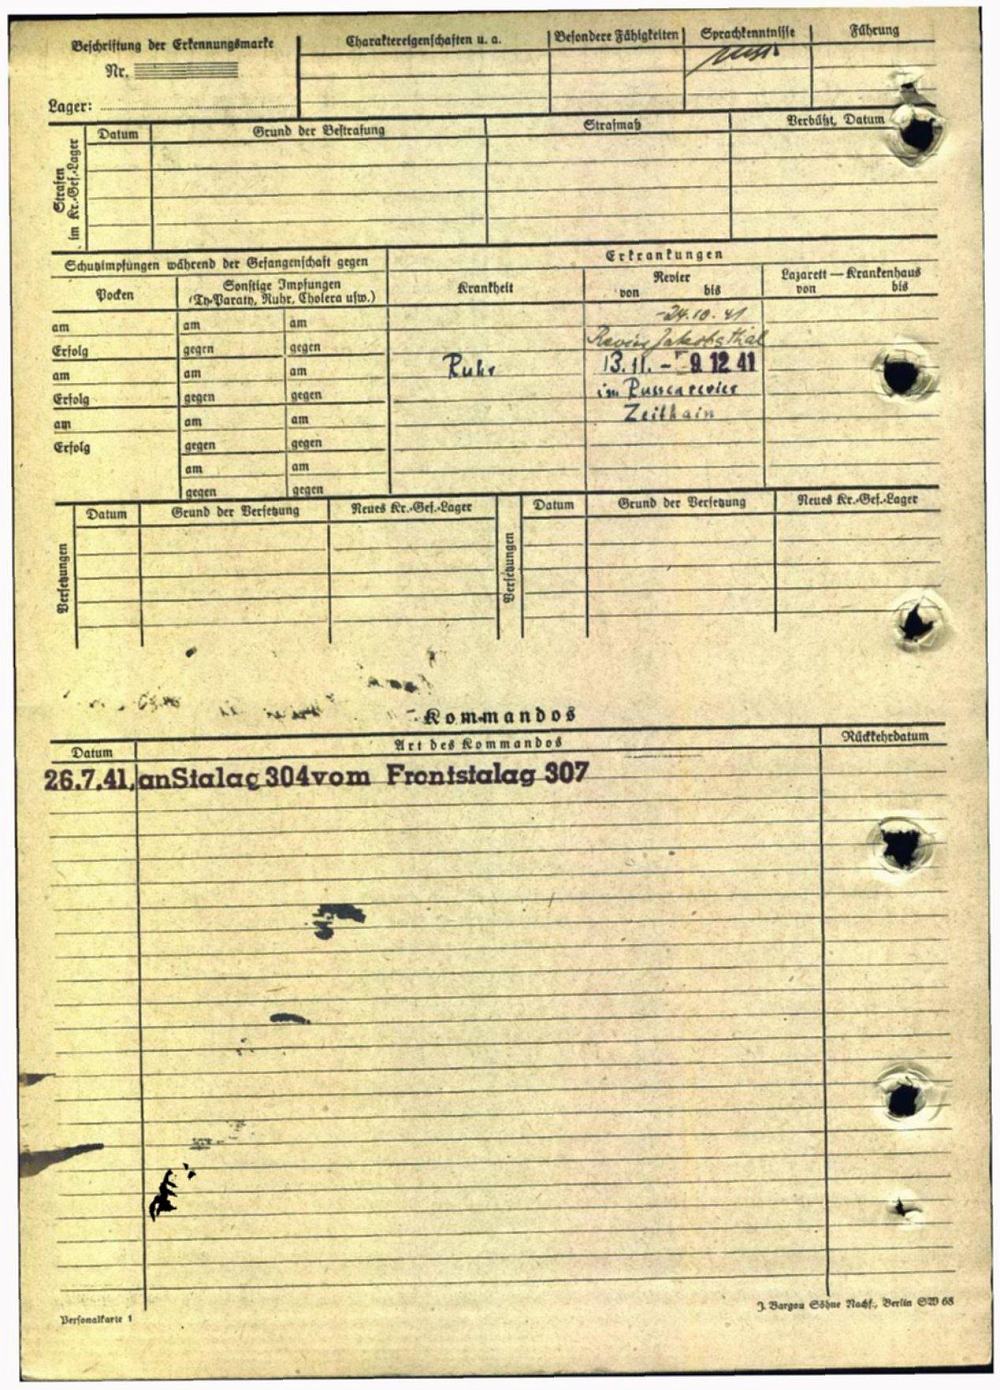 Beschriftung der Erkennungsmarke
Nr.
Lager:
Charaktereigenschaften u. a.
Besondere Fähigkeiten
Sprachkenntnisse
russ.
Führung
Strafen
im Kr.-Gef.-Lager
Datum
Grund der Bestrafung
Strafmaß
Verbüßt, Datum
Schutzimpfungen während der Gefangenschaft gegen
Pocken
Sonstige Impfungen
(Ty-Paraty, Ruhr, Cholera usw.)
am am am
Erfolg gegen gegen
am am am
Erfolg gegen gegen
am am am
Erfolg gegen gegen
am am
gegen gegen
Erkrankungen
Krankheit
Revier
von bis
Lazarett — Krankenhaus
von bis
-24.10.41
Revier Jakobsthal
Ruhr 13.11. - 9. 12 41
im Russenrevier
Zeithain
Versetzungen
Datum Grund der Versetzung Neues Kr.-Gef.-Lager
Versetzungen
Datum Grund der Versetzung Neues Kr.-Gef.-Lager
Kommandos
Datum Art des Kommandos Rückkehrdatum
26.7.41. an Stalag 304 vom Frontstalag 307
Personalkarte 1
J. Bargou Söhne Nachf., Berlin SW 68